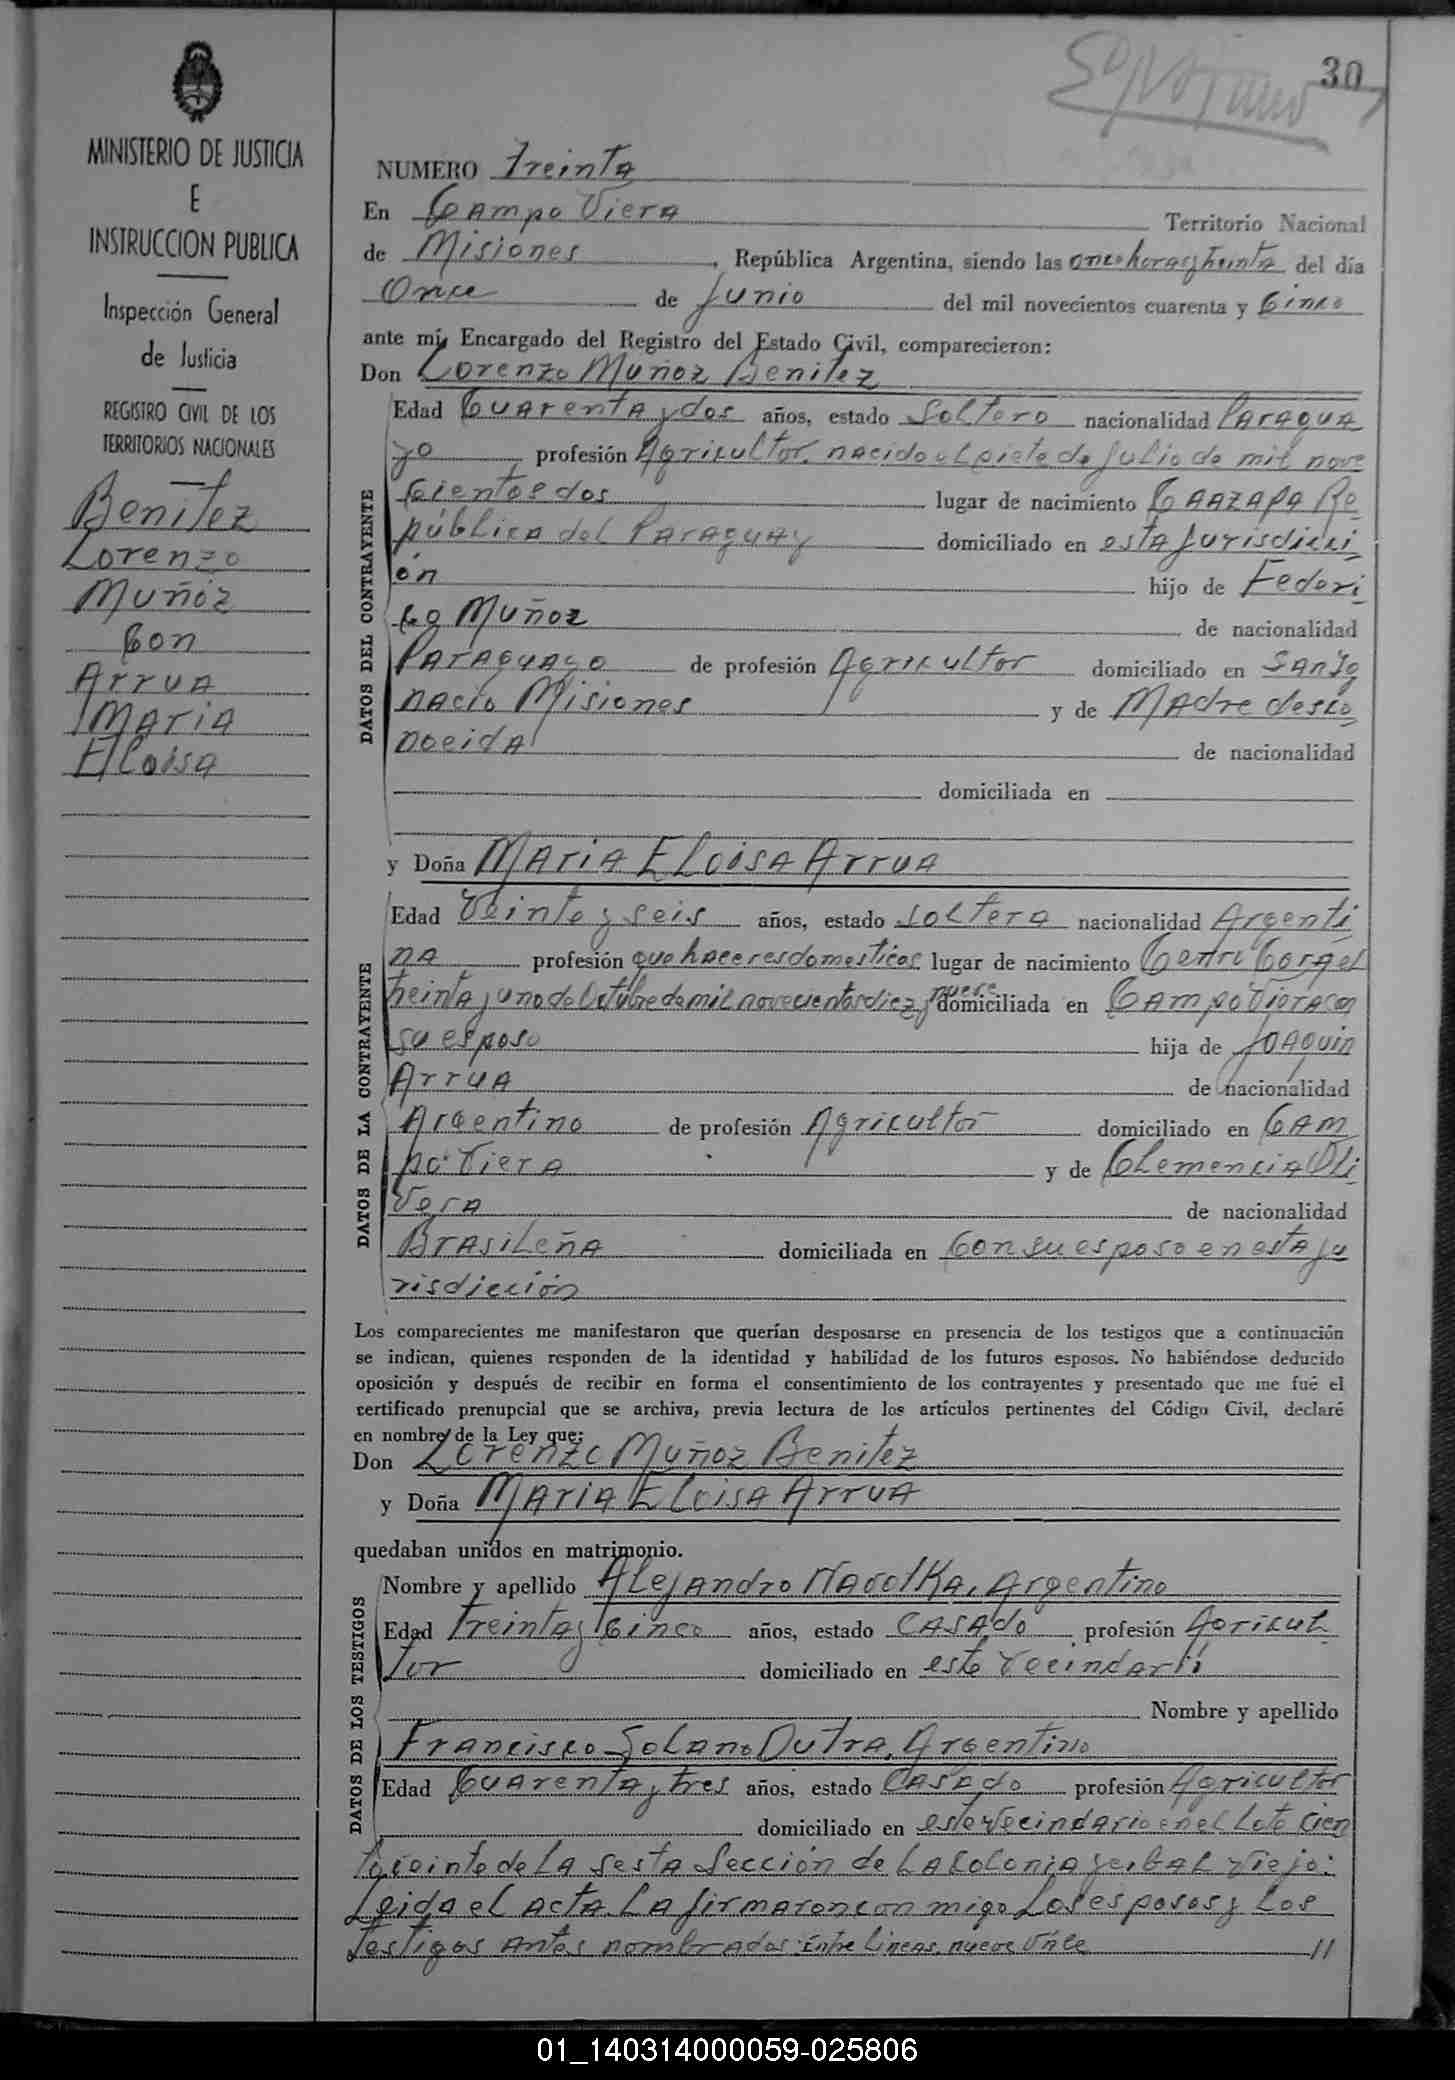 30
MINISTERIO DE JUSTICIA
E
INSTRUCCION PUBLICA
Inspección General
de Justicia
REGISTRO CIVIL DE LOS
TERRITORIOS NACIONALES
Benitez
Lorenzo
Muñoz
Con
Arrua
Maria
Eloisa
NUMERO Treinta
En Campo Viera Territorio Nacional
de Misiones, República Argentina, siendo las once horas y treinta del día
Once de Junio del mil novecientos cuarenta y Cinco
ante mí, Encargado del Registro del Estado Civil, comparecieron:
Don Lorenzo Muñoz Benitez
DATOS DEL CONTRAYENTE
Edad Cuarenta y dos años, estado Soltero nacionalidad Paragua
yo profesión Agricultor, nacido el siete de Julio de mil nove
cientos dos lugar de nacimiento Caazapa Re
pública del Paraguay domiciliado en esta Jurisdicci
ón hijo de Federi
co Muñoz de nacionalidad
Paraguayo de profesión Agricultor domiciliado en San Ig
nacio Misiones y de Madre desco
nocida de nacionalidad
domiciliada en
y Doña Maria Eloisa Arrua
DATOS DE LA CONTRAYENTE
Edad Veinte y seis años, estado Soltera nacionalidad Argenti
na profesión quehaceres domesticos lugar de nacimiento Cerro Corá el
treinta y uno de Octubre de mil novecientos diez y nueve domiciliada en Campo Viera con
su esposo hija de Joaquin
Arrua de nacionalidad
Argentino de profesión Agricultor domiciliado en Cam
po Viera y de Clemencia Oli
vera de nacionalidad
Brasileña domiciliada en Con su esposo en esta ju
risdicción
Los comparecientes me manifestaron que querían desposarse en presencia de los testigos que a continuación
se indican, quienes responden de la identidad y habilidad de los futuros esposos. No habiéndose deducido
oposición y después de recibir en forma el consentimiento de los contrayentes y presentado que me fué el
certificado prenupcial que se archiva, previa lectura de los artículos pertinentes del Código Civil, declaré
en nombre de la Ley que:
Don Lorenzo Muñoz Benitez
y Doña Maria Eloisa Arrua
quedaban unidos en matrimonio.
DATOS DE LOS TESTIGOS
Nombre y apellido Alejandro, Argentino
Edad Treinta y Cinco años, estado Casado profesión Agricul
tor domiciliado en este vecindari
Nombre y apellido
Francisco Solano Dutra, Argentino
Edad Cuarenta y tres años, estado Casado profesión Agricultor
domiciliado en este vecindario en el Lote Cien
to veinte de la Sesta Sección de la Colonia Yerbal Viejo:
Leida el acta, la firmaron con migo Los esposos y Los
testigos antes nombrados: Entre lineas, nueve Vále
01_140314000059-025806